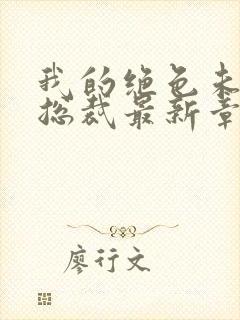 我的绝色未
总裁最新章
廖行文